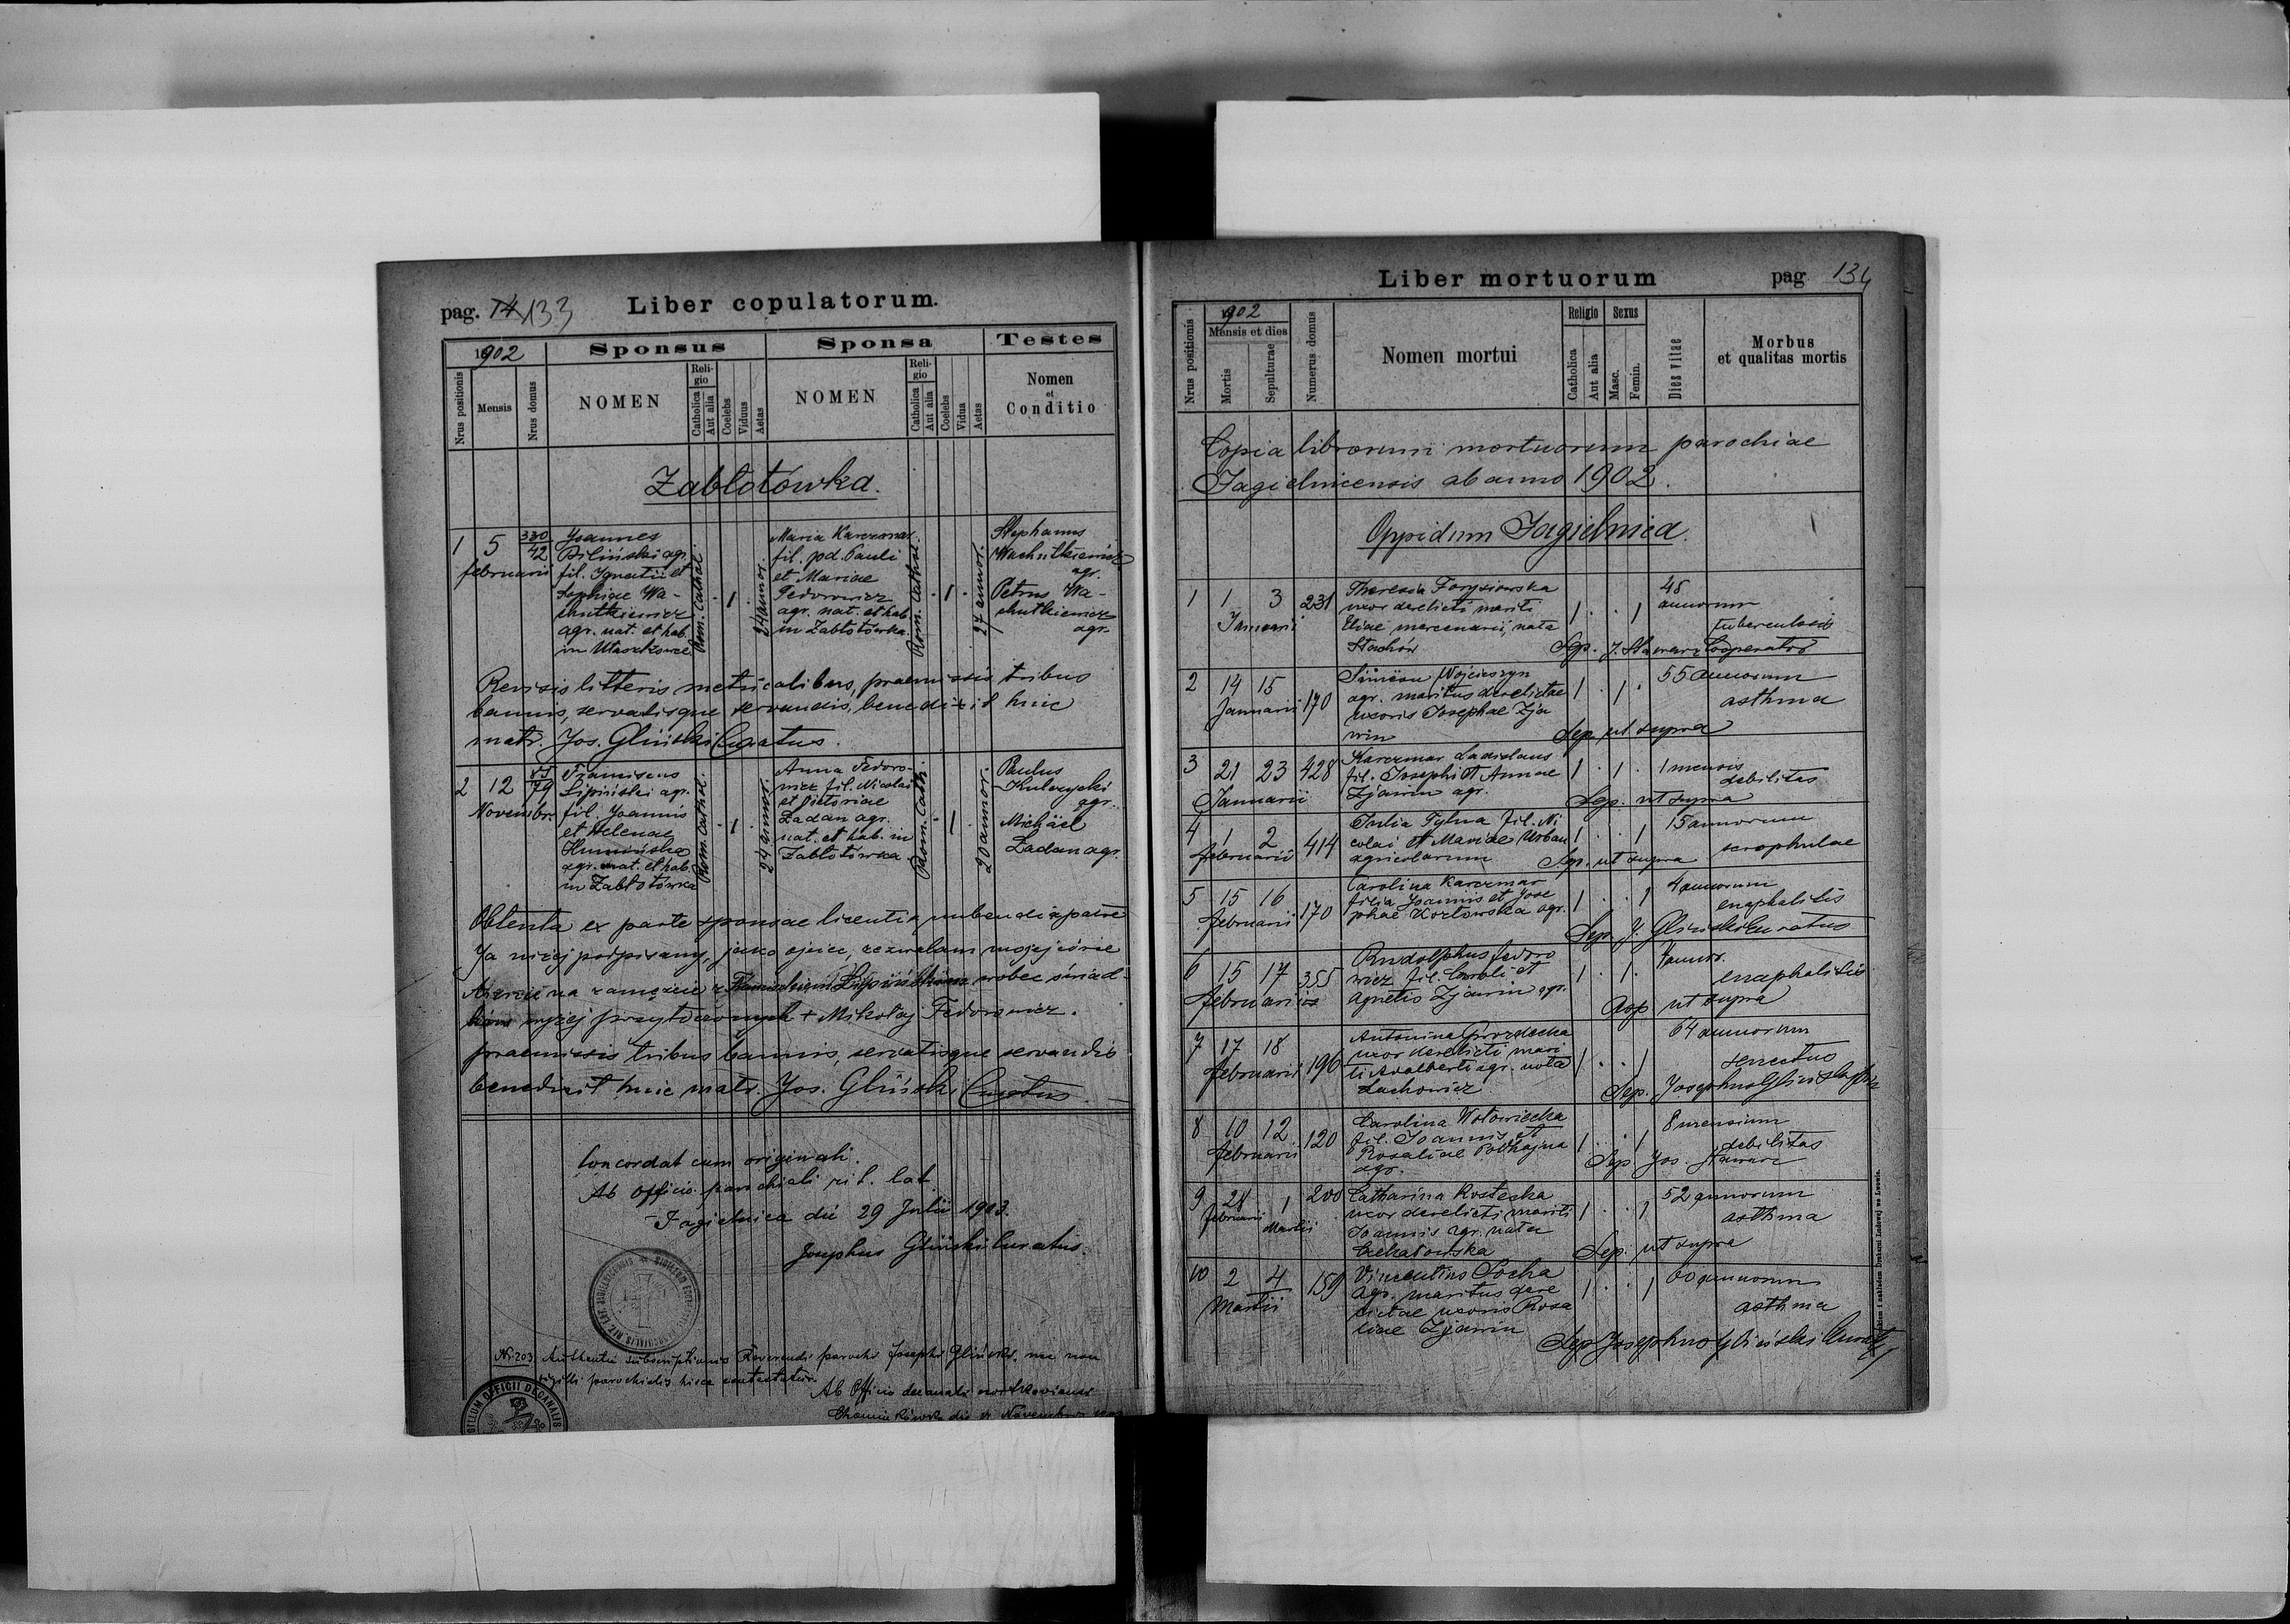 pag. 14 133
Liber copulatorum.
1902
Sponsus
Sponsa
Testes
Nrus positionis
Mensis
Nrus domus
NOMEN
Religio
Catholica
Aut alia
Coelebs
Viduus
Aetas
NOMEN
Religio
Catholica
Aut alia
Coelebs
Vidua
Aetas
Nomen
et
Conditio
Zabłotówka.
1 5 februarii
330
42
Joannes
Biliński agr.
fil. Ignatii et
Sophiae Wa-
chutkiewicz
agr. nat. et hab.
in Ułaszkowce
Rom. Cathol.
1
24 annor.
Maria Karczmar
fil. pd. Pauli
et Mariae
Fedorowicz
agr. nat. et hab.
in Zabłotówka
Rom. Cathol.
1
27 annor.
Stephanus
Wachutkiewicz
agr.
Petrus Wa-
chutkiewicz
agr.
Revisis litteris metricalibus, praemissis tribus
bannis, servatisque servandis, benedixit huic
matr. Jos. Gliński Curatus.
2 12 Novembr.
79
Franciscus
Lipiński agr.
fil. Joannis
et Helenae
agr. nat. et hab.
in Zabłotówka
Rom. Cathol.
1
24 annor.
Anna Fedoro-
wicz fil. Nicolai
et Victoriae
Zadan agr.
nat. et hab. in
Zabłotówka
Rom. Cath.
1
20 annor.
Paulus
Kulczycki
agr.
Michael
Zadan agr.
Obtenta ex parte sponsae licentia nubendi a patre
Ja niżej podpisany, jako ojciec, zezwalam mojej córce
Annie na zamęście z Franciszkiem Lipińskim wobec świad-
ków wyżej przytoczonych + Mikołaj Fedorowicz.
praemissis tribus bannis, servatisque servandis
benedixit huic matr. Jos. Gliński Curatus.
Concordat cum originali.
Ab officio parochiali rit. lat.
Jagielnica die 29 Julii 1903.
Josephus Gliński Curatus.
Nr 203 Authentia subscriptionis Reverendi parochi Josephi Gliński, nec non
sigilli parochialis hisce contestatur.
Ab Officio decanali
SIGILLUM OFFICII DECANALIS
Liber mortuorum
pag 134
1902
Nrus positionis
Mensis et dies
Mortis
Sepulturae
Numerus domus
Nomen mortui
Religio
Catholica
Aut alia
Sexus
Masc.
Femin.
Dies vitae
Morbus
et qualitas mortis
Copia librorum mortuorum parochiae
Jagielnicensis ab anno 1902.
Oppidum Jagielnica.
1 1 3 Januarii 231
Theresia
uxor derelicti mariti
Eliae mercenarii, nata
Stachów
1 . . 1
48
annorum
tuberculosis
Sep. J. Cooperator
2 14 15 Januarii 170
Simeon Wojciszyn
agr. maritus derelictae
uxoris Josephae Zja
win
1 . 1 .
55 annorum
asthma
Sep. ut supra
3 21 23 Januarii 428
Karczmar Ladislaus
fil. Josephi et Annae
Zjawin agr.
1 . 1 .
1 mensis
debilitas
Sep. ut supra
4 1 2 februarii 414
Julia Tylna fil. Ni
colai et Mariae Urban
agricolarum
1 . . 1
15 annorum
scrophulae
Sep. ut supra
5 15 16 februarii 170
Carolina Karczmar
filia Joannis et Jose
phae Kozłowska agr.
1 . . 1
4 annorum
enaphalitis
Sep. J. Gliński Curatus
6 15 17 februarii 355
Rudolphus Fedoro
wicz fil. Caroli et
Agnetis Zjawin agr.
1 . 1 .
enaphalitis
Sep. ut supra
7 17 18 februarii 196
Antonina Grozdecka
uxor derelicti mari
ti Adalberti agr. nata
Lachowicz
1 . . 1
64 annorum
senectus
Sep. Josephus Gliński
8 10 12 februarii 120
Carolina
fil. Joannis et
Rosaliae Podhajna
agr.
1 . . 1
8 mensium
debilitas
Sep. Jos.
9 28 februarii 1 Martii 200
Catharina Kostecka
uxor derelicti mariti
Joannis agr. nata
Czekałowska
1 . . 1
52 annorum
asthma
Sep. ut supra
10 2 4 Martii 159
Vincentius Socha
agr. maritus dere
lictae uxoris Rosa
liae Zjawin
1 . . 1
60 annorum
asthma
Sep. Josephus Gliński Curat